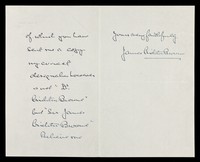 of which you have
sent me a copy
my correct
designation however
is not "Dr.
Crichton-Browne"
but "Sir James
Crichton-Browne"
Believe me
Yours very faithfully
James Crichton-Browne